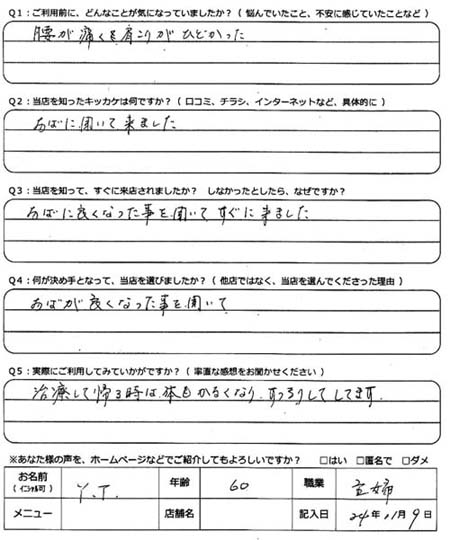 Q1：ご利用前に、どんなことが気になっていましたか？（ 悩んでいたこと、不安に感じていたことなど ）
腰が痛くも肩こりがひどかった
Q2：当店を知ったキッカケは何ですか？（ 口コミ、チラシ、インターネットなど、具体的に ）
おばに聞いて来ました
Q3：当店を知って、すぐに来店されましたか？ しなかったとしたら、なぜですか？
おばに良くなった事を聞いてすぐに来ました
Q4：何が決め手となって、当店を選びましたか？（ 他店ではなく、当店を選んでくださった理由 ）
おばが良くなった事を聞いて
Q5：実際にご利用してみていかがですか？（ 率直な感想をお聞かせください ）
治療して帰る時は、体もかるくなり、すっきりして してます。
※あなた様の声を、ホームページなどでご紹介してもよろしいですか？ □はい □匿名で □ダメ
お名前（イニシャル可） Y.T. 年齢 60 職業 主婦
メニュー 店舗名 記入日 24年11月9日